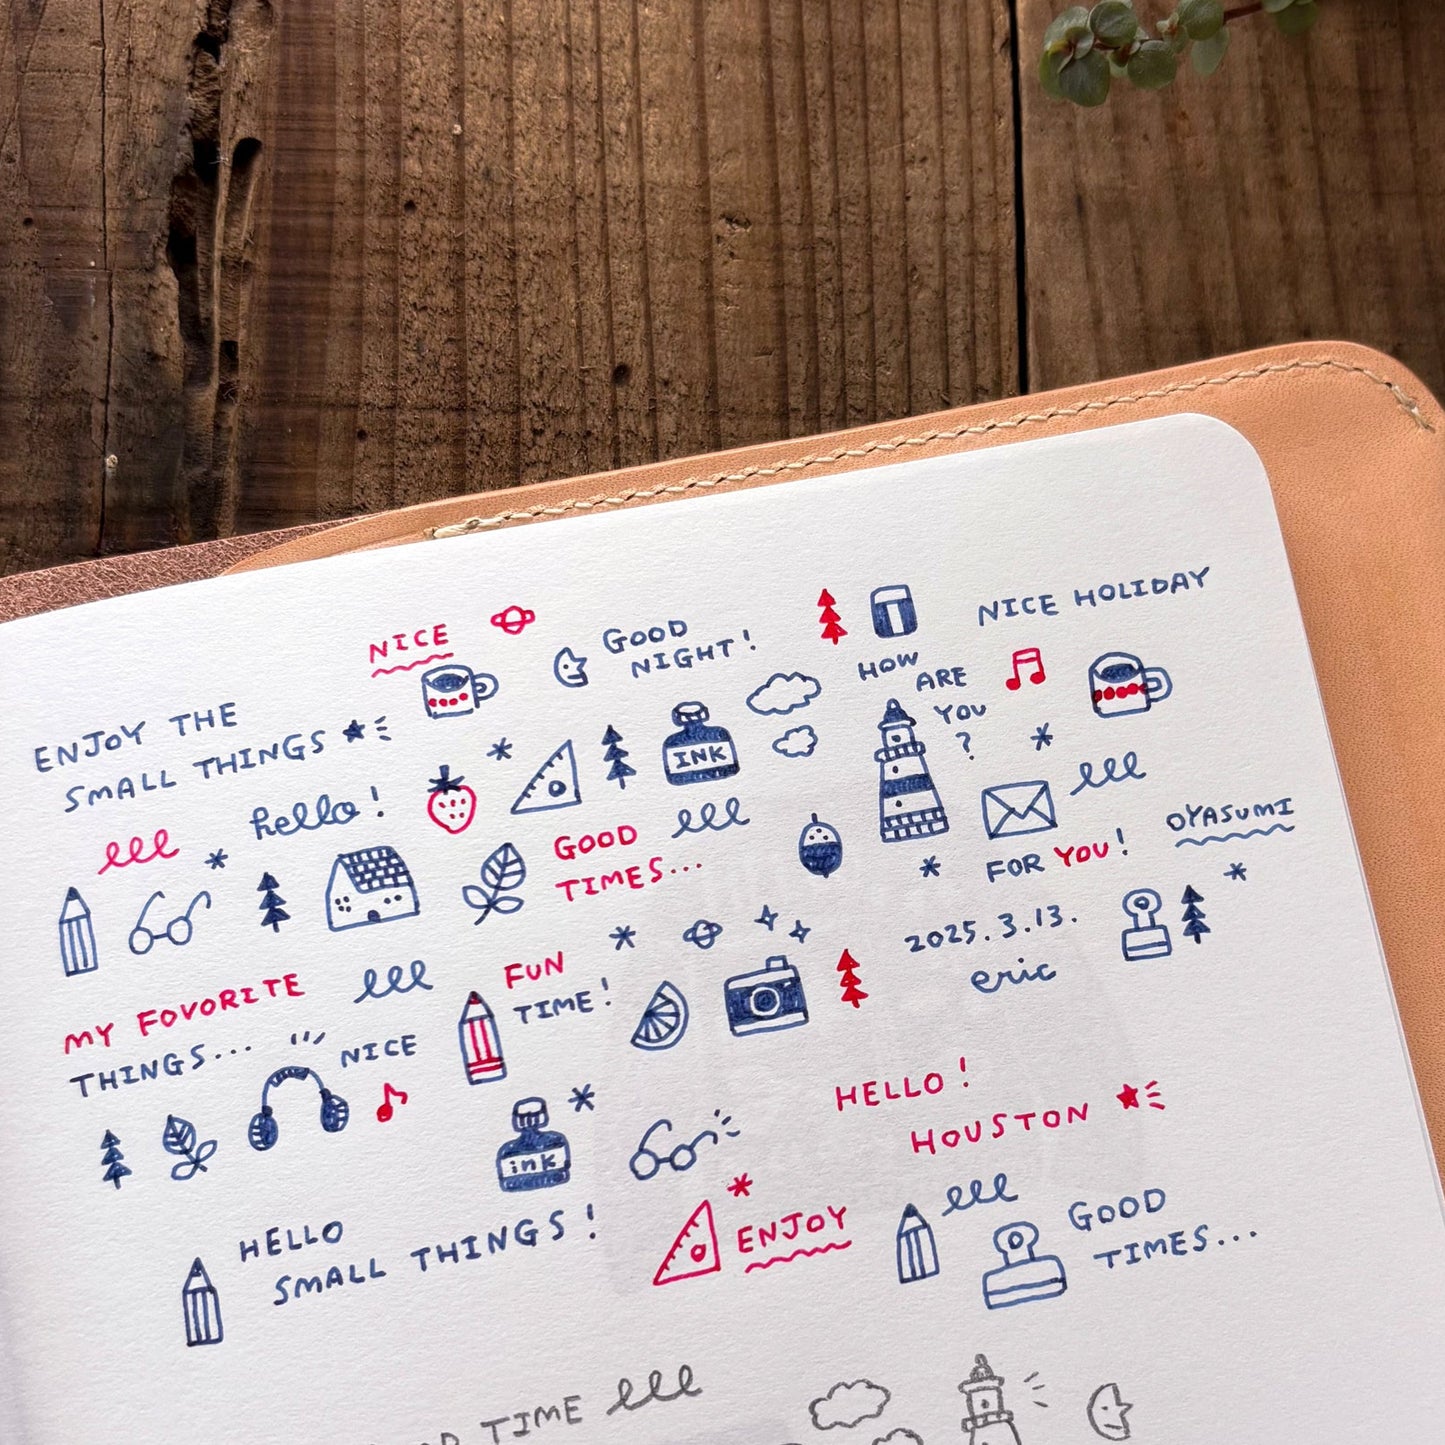 NICE
GOOD
NIGHT!
NICE HOLIDAY
HOW
ARE
YOU
?
ENJOY THE
SMALL THINGS
INK
hello!
GOOD
TIMES...
FOR YOU!
OYASUMI
2025.3.13.
eric
MY FOVORITE
THINGS...
NICE
FUN
TIME!
HELLO!
HOUSTON
ink
HELLO
SMALL THINGS!
ENJOY
GOOD
TIMES...
TIME